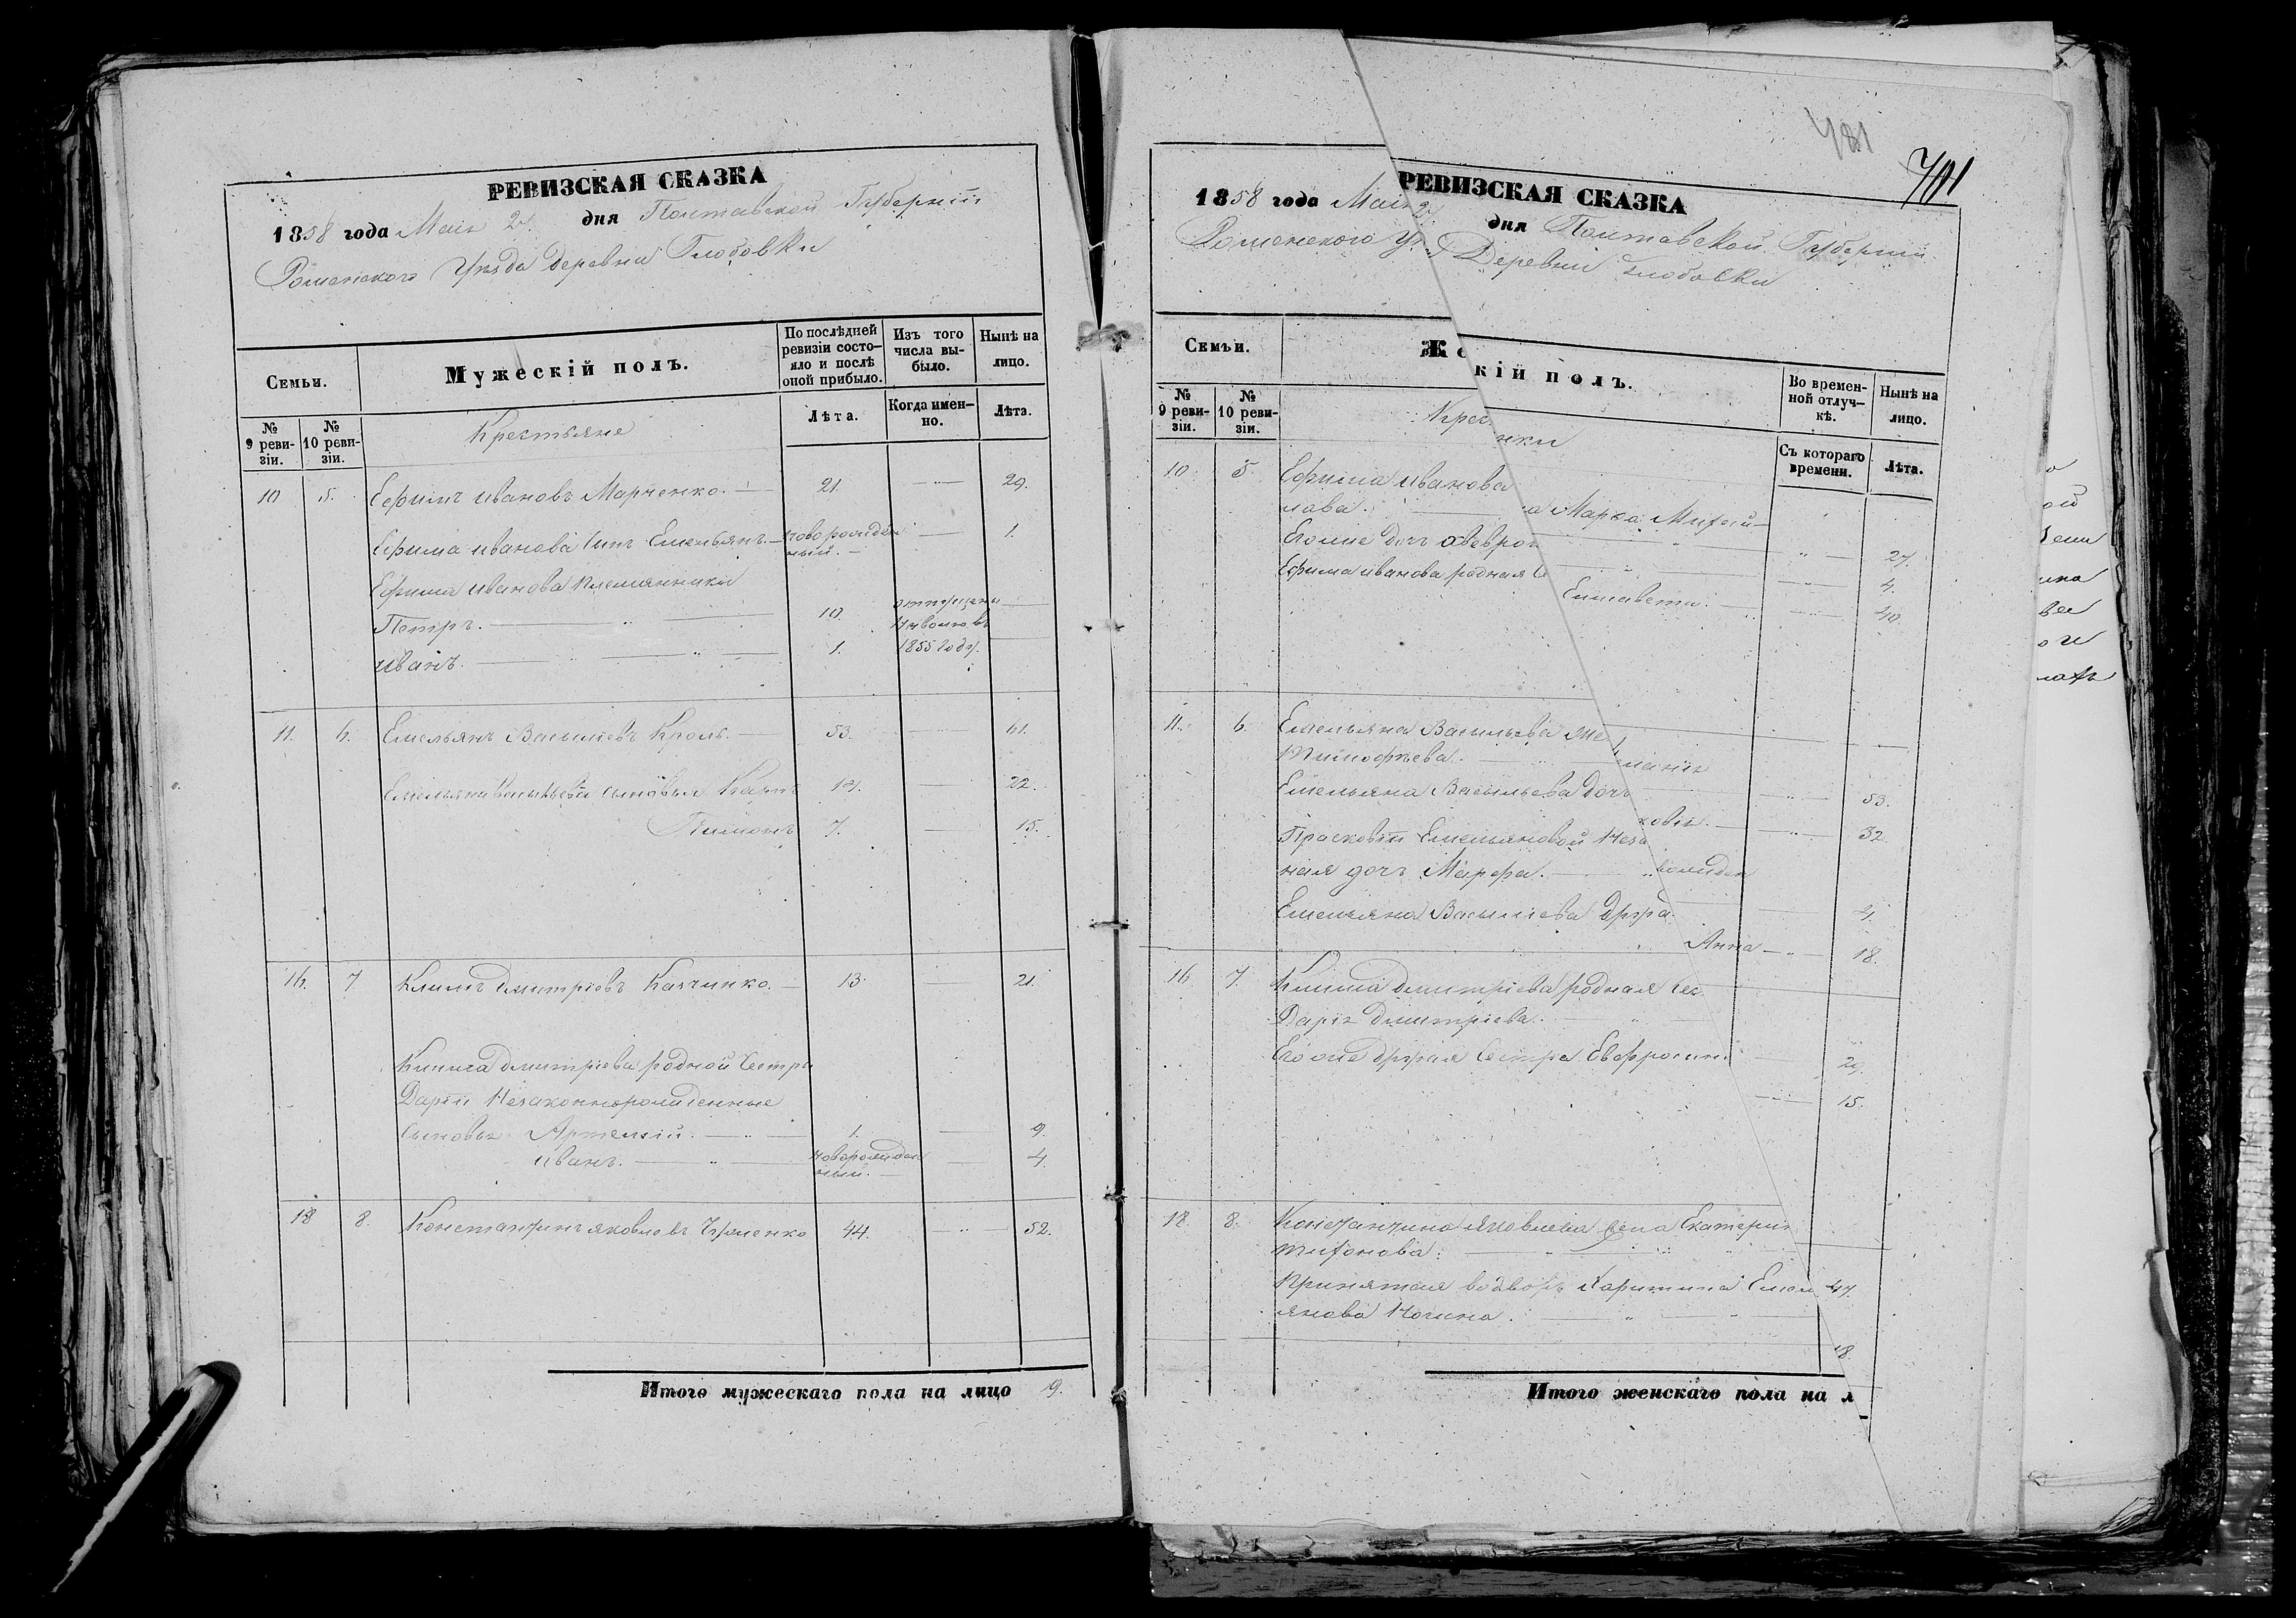 РЕВИЗСКАЯ СКАЗКА
1858 года Мая 2 дня Полтавской Губерніи
Роменскаго Уѣзда деревни Глобовки
Семьи.
Мужескій полъ.
По послѣдней ревизіи состояло и послѣ оной прибыло.
Изъ того числа выбыло.
Нынѣ на лицо.
№ 9 ревизіи.
№ 10 ревизіи.
Крестьяне
Лѣта.
Когда именно.
Лѣта.
10 5. Ефимъ Ивановъ Марченко. 21. 29.
Ефима Иванова сынъ Емельянъ. новорожден 1.
ный.
Ефима Иванова племянники
Петръ. 10. отпущены
на волю въ
Иванъ. 1. 1855 году.
11. 6. Емельянъ Васильевъ Кроль. 53. 61.
Емельяна Васильева сыновья Карпъ 14. 22.
Пименъ 7. 15.
16. 7 Климъ Дмитріевъ Калчинко. 13. 21.
Клима Дмитріева родной сестры
Даріи незаконнорожденные
сыновья Артемій. 1. 9.
Иванъ. новорожден 4.
ный.
18 8. Константинъ Яковлевъ 44. 52.
Итого мужескаго пола на лицо 9.
481
701
РЕВИЗСКАЯ СКАЗКА
1858 года Мая 2 дня Полтавской Губерніи
Роменскаго У Деревни Глобовки
Семьи.
Же кій полъ.
Во временной отлучкѣ.
Нынѣ на лицо.
№ 9 ревизіи.
№ 10 ревизіи.
Крес нки
Съ котораго времени.
Лѣта.
10. 5. Ефима Иванова
лова. а Марка Михай
27.
Егоже дочь
4.
Ефима Иванова родная с
Елисавета. 40.
11. 6. Емельяна Васильева же
Тимофѣева. ланія
53.
Емельяна Васильева дочь
ковья. 32.
Прасковіи Емельяновой неза
ная дочь Марфа. рожден
4.
Емельяна Васильева друга
Анна 18.
16 7. Клима Дмитріева родная сес
Дарія Дмитріева.
29.
Егоже другая сестра Евфросинія
15.
18. 8. Константина Яковлева жена Екатерин
Тихонова. 47.
Принятая во дворъ Харитина Емел
янова
18.
Итого женскаго пола на л